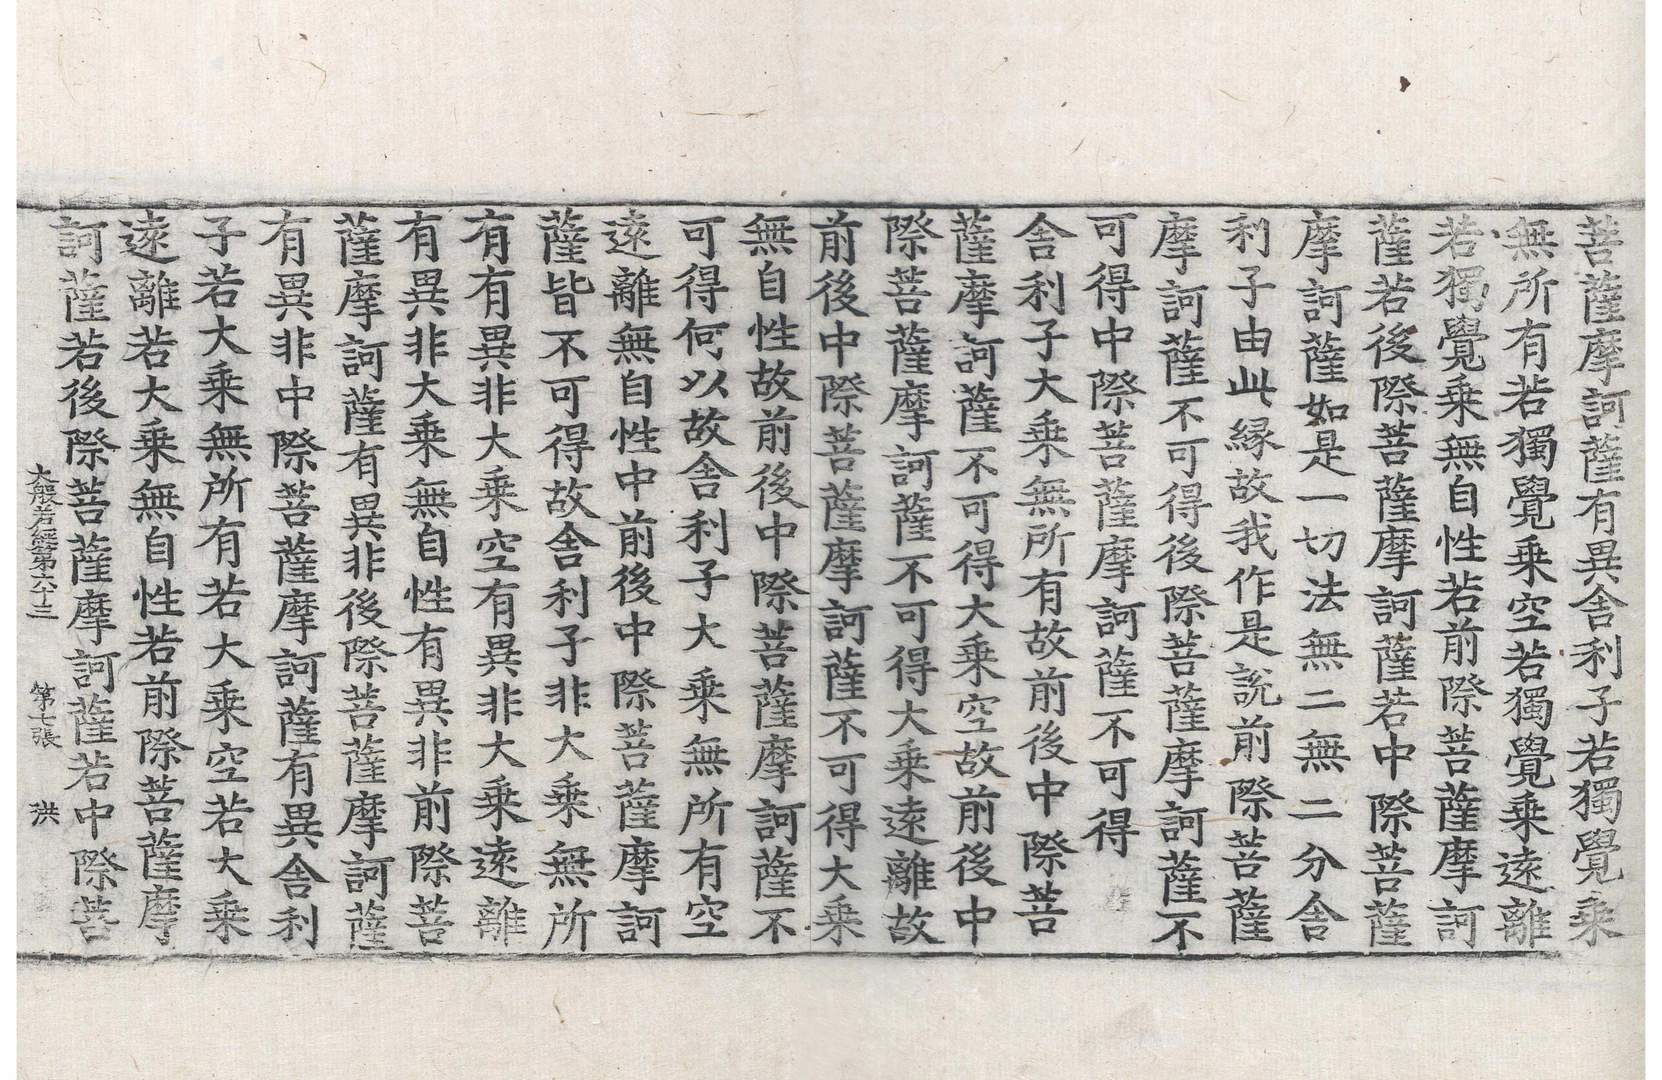 菩薩摩訶薩有異舍利子若獨覺乗
無所有若獨覺乗空若獨覺乗遠離
若獨覺乗無自性若前際菩薩摩訶
薩若後際菩薩摩訶薩若中際菩薩
摩訶薩如是一切法無二無二分舍
利子由此縁故我作是説前際菩薩
摩訶薩不可得後際菩薩摩訶薩不
可得中際菩薩摩訶薩不可得
舍利子大乗無所有故前後中際菩
薩摩訶薩不可得大乗空故前後中
際菩薩摩訶薩不可得大乗遠離故
前後中際菩薩摩訶薩不可得大乗
無自性故前後中際菩薩摩訶薩不
可得何以故舍利子大乗無所有空
遠離無自性中前後中際菩薩摩訶
薩皆不可得故舍利子非大乗無所
有有異非大乗空有異非大乗遠離
有異非大乗無自性有異非前際菩
薩摩訶薩有異非後際菩薩摩訶薩
有異非中際菩薩摩訶薩有異舍利
子若大乗無所有若大乗空若大乗
遠離若大乗無自性若前際菩薩摩
訶薩若後際菩薩摩訶薩若中際菩
大般若經第六十三 第七張 洪